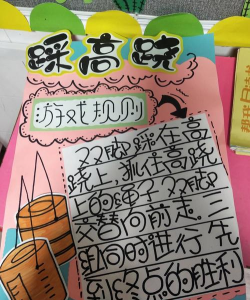 踩高跷
游戏规则
双脚踩在高
跷上抓住高跷
上的绳子双脚
交替向前走.三
组同时进行先
到终点的胜利